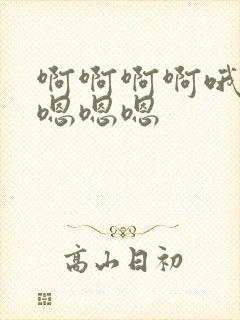 啊啊啊啊哦
嗯嗯嗯
高山日初